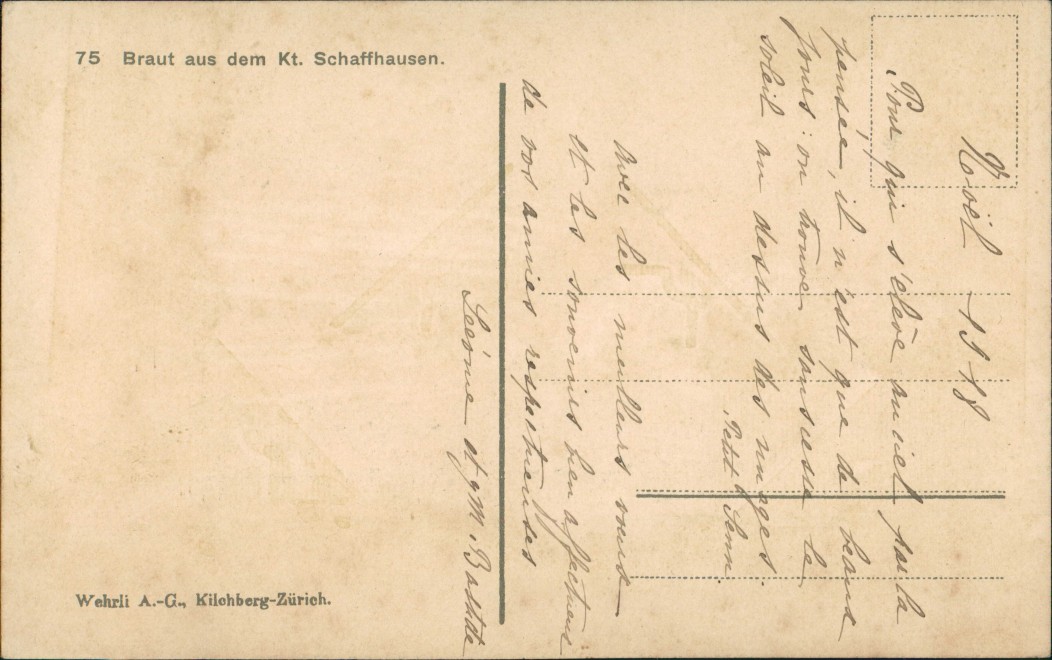 75 Braut aus dem Kt. Schaffhausen.
Wehrli A.-G., Kilchberg-Zürich.
Noël 1918
Pour qui s'élève au ciel par la
pensée, il n'est que de beaux
jours: on trouve sans cesse le
soleil au dessus des nuages.
Petit Senn
Avec les meilleurs voeux
et les souvenirs bien affectueux
de vos amies respectueuses
et M.